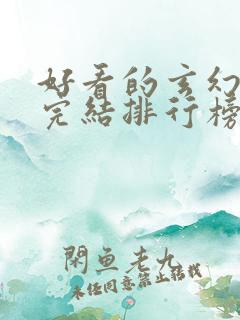 好看的玄幻
完结排行榜
閑魚老九
未经同意禁止转载